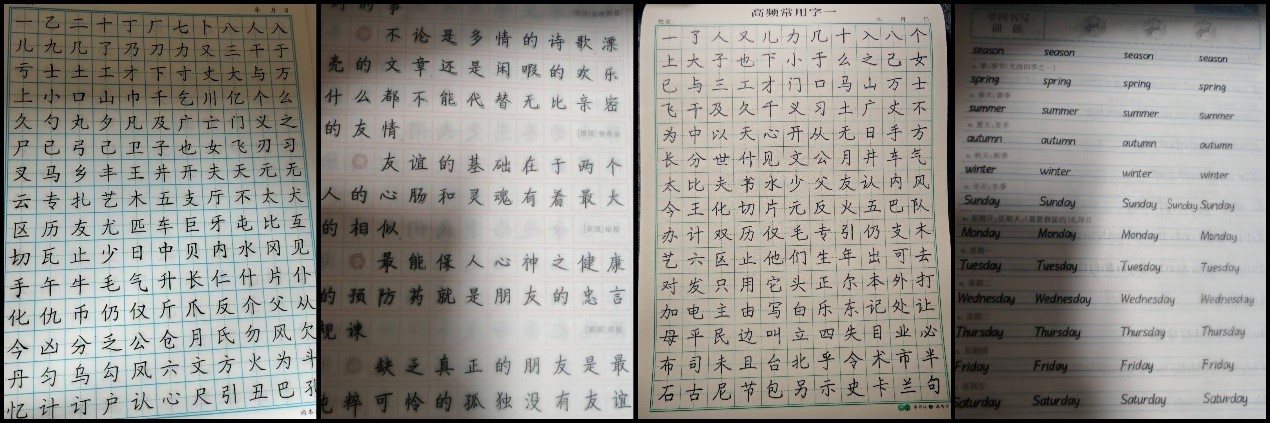 年 月 日
一乙二十丁厂七卜八人入
儿九几了乃刀力又三干于
亏士土工才下寸丈大与万
上小口山巾千乞川亿个么
久勺丸夕凡及广亡门义之
尸已弓己卫子也女飞刃习
叉马乡丰王井开夫天元无
云专扎艺木五支厅不太犬
区历友尤匹车巨牙屯比互
切瓦止少日中贝内水冈见
手午牛毛气升长仁什片仆
化仇币仍仅斤爪反介父从
今凶分乏公仓月氏勿风欠
丹匀乌勾凤六文方火为斗
忆计订户认心尺引丑巴孔
的事
不论是多情的诗歌漂
亮的文章还是闲暇的欢乐
什么都不能代替无比亲密
的友情
友谊的基础在于两个
人的心肠和灵魂有着最大
的相似
最能保人心神之健康
的预防药就是朋友的忠言
规谏
缺乏真正的朋友是最
纯粹可怜的孤独没有友谊
高频常用字一
一了人又儿力几十入八个
上大子也下小于么之己女
已与三工才门口马山万士
飞干及久千义习土广丈不
为中以天心开从无日手方
长分世什见文公月井车气
太比夫书水少父友认内风
今王化切片元反火五巴队
办计双历仅毛专引仍支木
艺六区止他们生年出可去
对发只用它头正尔本外打
加电主由写白乐东记处让
母平民边叫立四失目业必
布司未且台北乎令术市半
石古尼节包另示史卡兰句
单词书写
训练
season season season season
spring spring spring spring
summer summer summer summer
autumn autumn autumn autumn
winter winter winter winter
Sunday Sunday Sunday Sunday Sunday
Monday Monday Monday Monday
Tuesday Tuesday Tuesday Tuesday
Wednesday Wednesday Wednesday Wednesday
Thursday Thursday Thursday Thursday
Friday Friday Friday Friday
Saturday Saturday Saturday Saturday